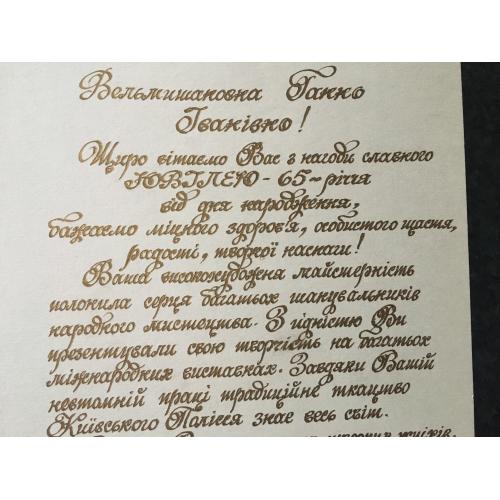 Вельмишановна Ганно
Іванівно!
Щиро вітаємо Вас з нагоди славного
ЮВІЛЕЮ - 65-річчя
від дня народження,
бажаємо міцного здоров'я, особистого щастя,
радості, творчої наснаги!
Ваша високохудожня майстерність
полонила серця багатьох шанувальників
народного мистецтва. З гідністю Ви
презентували свою творчість на багатьох
міжнародних виставках. Завдяки Вашій
невтомній праці традиційне ткацтво
Київського Полісся знає весь світ.